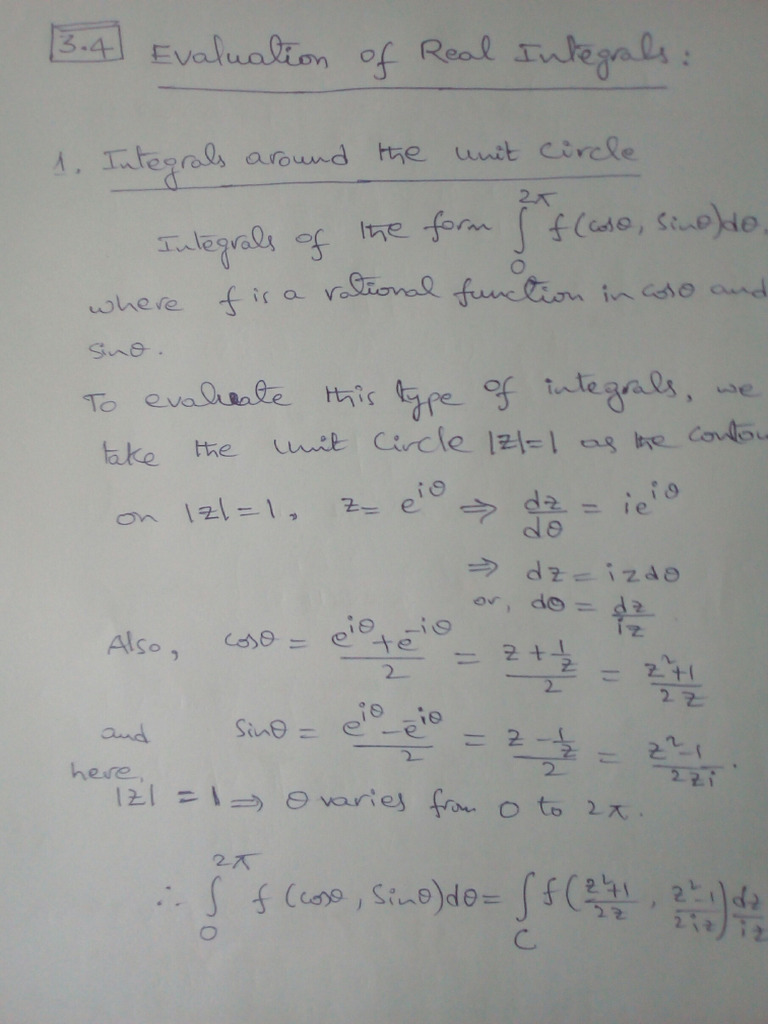 3.4 Evaluation of Real Integrals:
1. Integrals around the unit circle
Integrals of the form ∫₀^{2π} f(cosθ, sinθ)dθ,
where f is a rational function in cosθ and
sinθ.
To evaluate this type of integrals, we
take the unit circle |z|=1 as the contou
on |z|=1, z = e^{iθ} ⇒ dz/dθ = ie^{iθ}
⇒ dz = izdθ
or, dθ = dz/iz
Also, cosθ = (e^{iθ}+e^{-iθ})/2 = (z + 1/z)/2 = (z²+1)/2z
and sinθ = (e^{iθ} - e^{-iθ})/2 = (z - 1/z)/2 = (z²-1)/2zi.
here,
|z| = 1 ⇒ θ varies from 0 to 2π.
∴ ∫₀^{2π} f(cosθ, Sinθ)dθ = ∫_C f((z²+1)/2z, (z²-1)/2iz) dz/iz